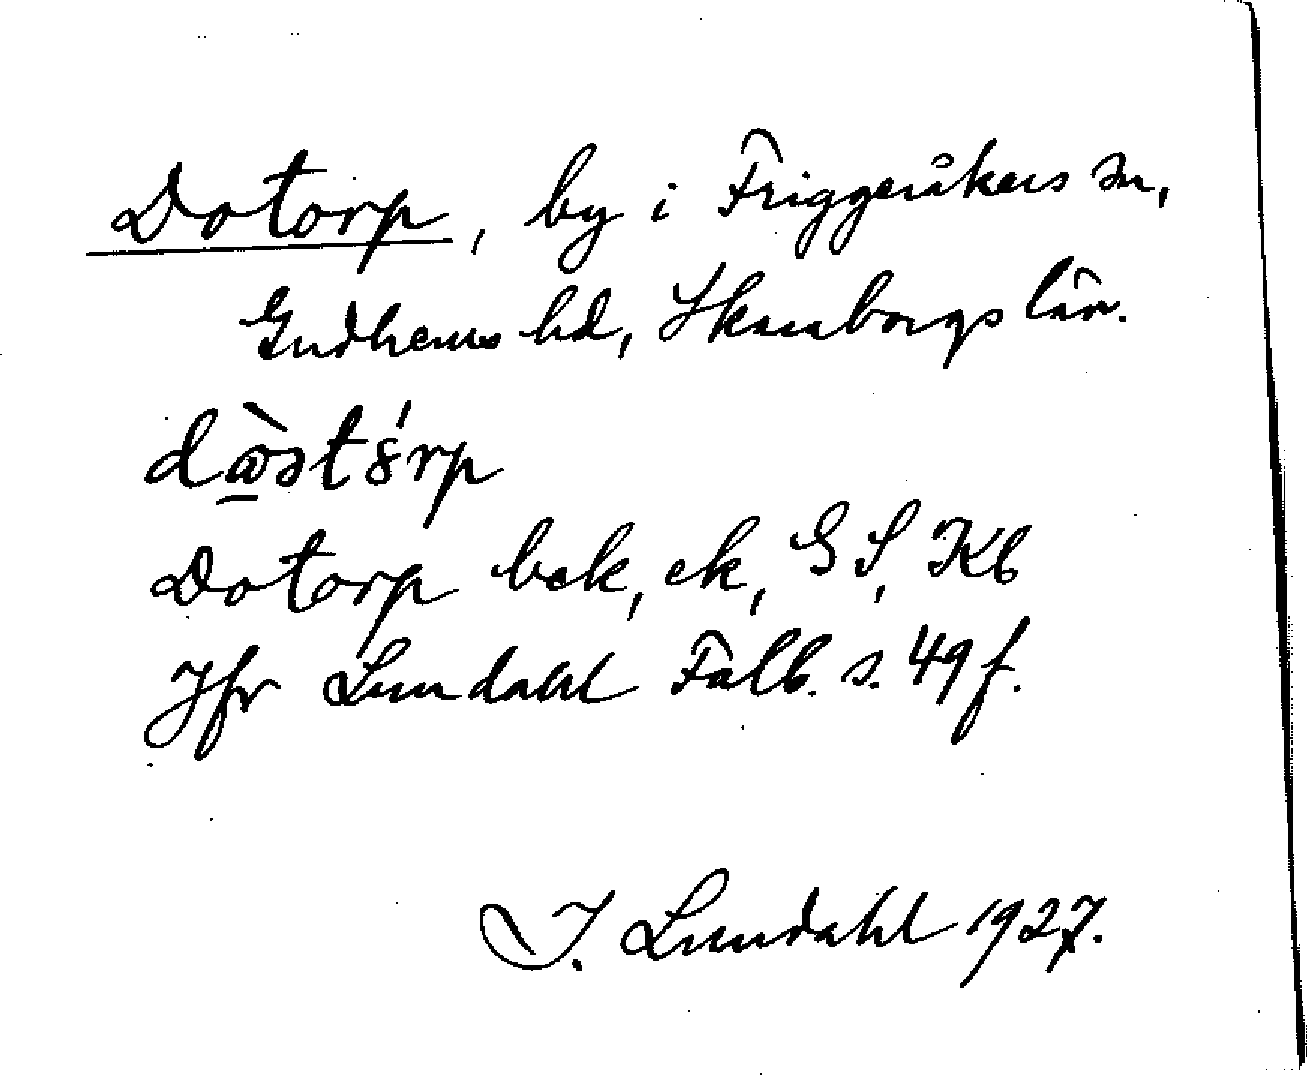 Dotorp, by i Friggeråkers sn,
Gudhems hd, Skaraborgs län.
dὼ̱ət8́rp
Dotorp bek, ek, GS, JKb
Jfr Lundahl Falb. s. 49 f.
I. Lundahl 1927.